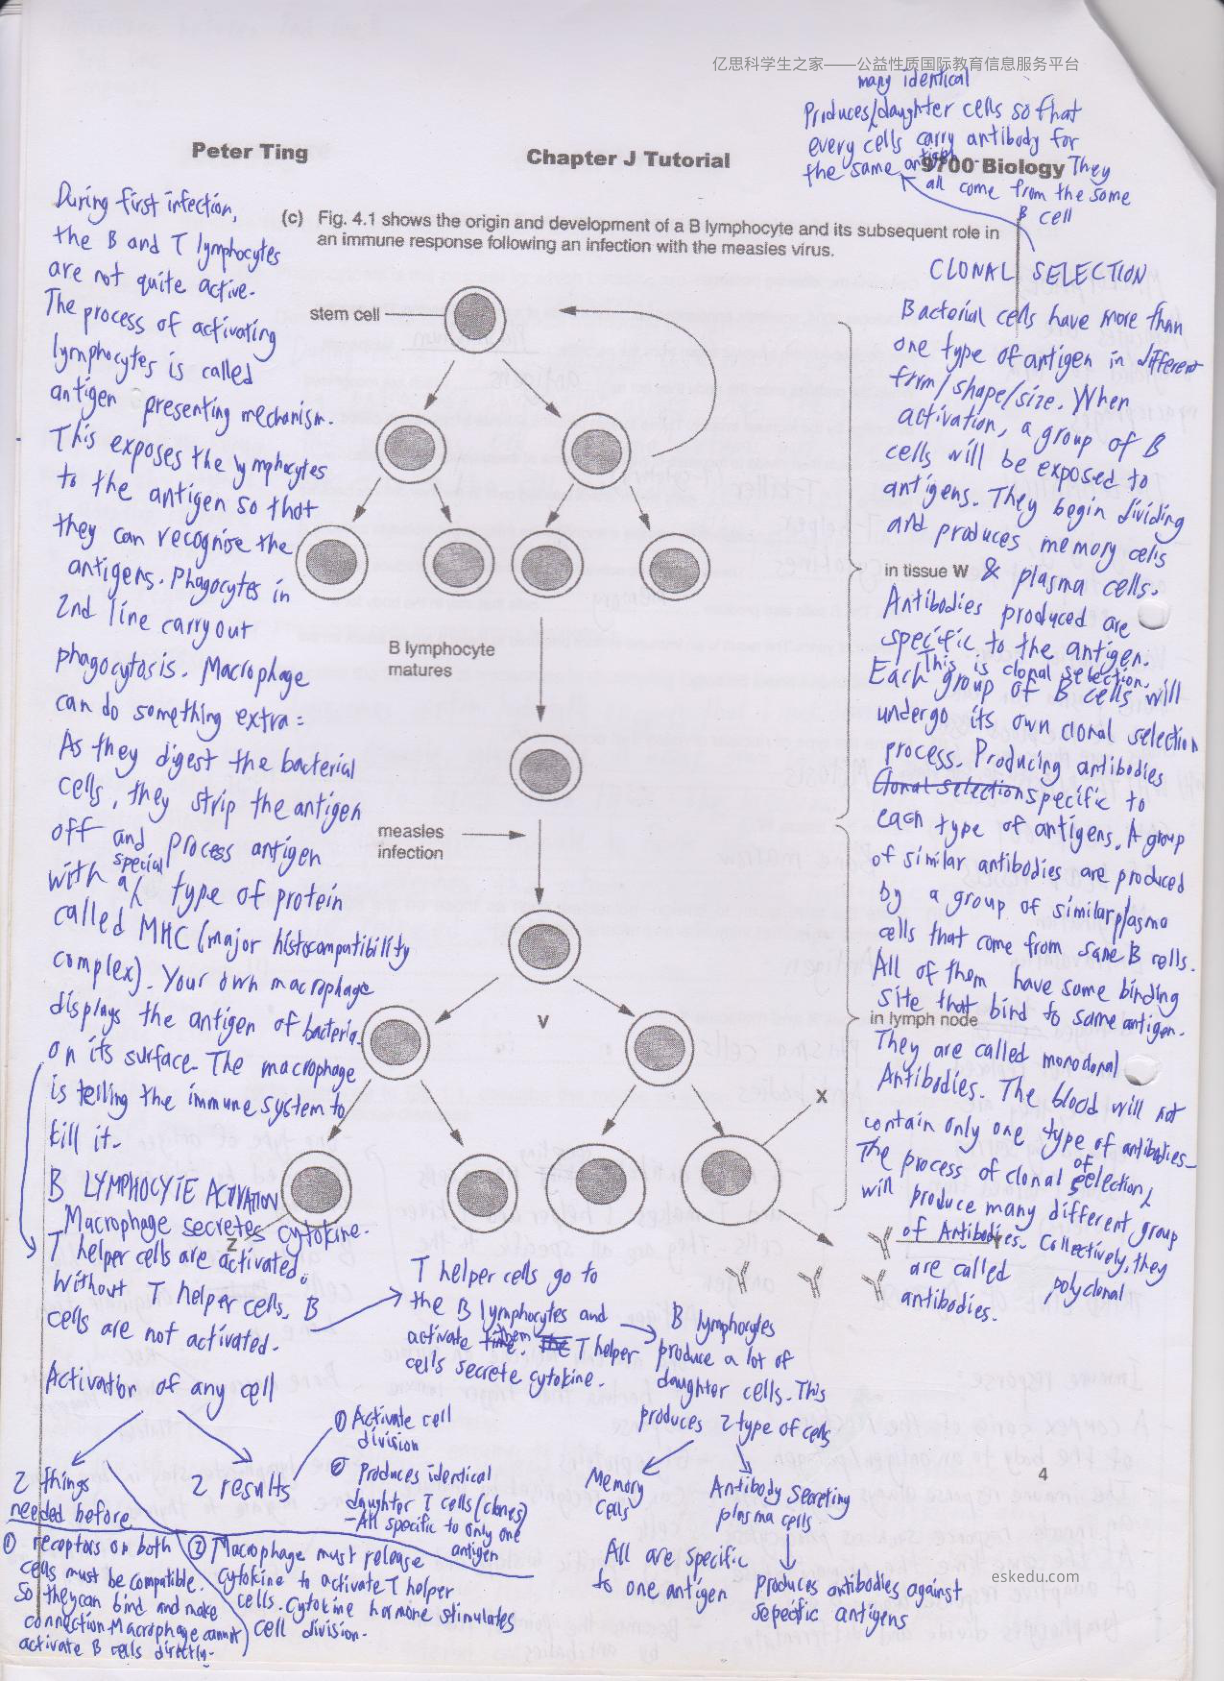 亿思科学生之家——公益性质国际教育信息服务平台
many identical
Produces/daughter cells so that
every cells carry antibody for
the same antigen. They
all come from the same
B cell
Peter Ting
Chapter J Tutorial
9700 Biology
(c) Fig. 4.1 shows the origin and development of a B lymphocyte and its subsequent role in
an immune response following an infection with the measles virus.
During first infection,
the B and T lymphocytes
are not quite active.
The process of activating
lymphocytes is called
antigen presenting mechanism.
This exposes the lymphocytes
to the antigen so that
they can recognise the
antigens. Phagocytes in
2nd line carry out
phagocytosis. Macrophage
can do something extra:
As they digest the bacterial
cells, they strip the antigen
off and process antigen
with a special type of protein
called MHC (major histocompatibility
complex). Your own macrophage
displays the antigen of bacteria
on its surface. The macrophage
is telling the immune system to
kill it.
B LYMPHOCYTE ACTIVATION
Macrophage secretes cytokine.
T helper cells are activated.
Without T helper cells, B
cells are not activated.
stem cell
B lymphocyte
matures
measles
infection
V
X
Z
Y
in tissue W
in lymph node
CLONAL SELECTION
Bacterial cells have more than
one type of antigen in different
form/shape/size. When
activation, a group of B
cells will be exposed to
antigens. They begin dividing
and produces memory cells
& plasma cells.
Antibodies produced are
specific to the antigen.
This is clonal selection.
Each group of B cells will
undergo its own clonal selection
process. Producing antibodies
Clonal selection specific to
each type of antigens. A group
of similar antibodies are produced
by a group of similar plasma
cells that come from same B cells.
All of them have same binding
site that bind to same antigen.
They are called monoclonal
Antibodies. The blood will not
contain only one type of antibodies
The process of clonal selection
will produce many different group
of Antibodies. Collectively, they
are called polyclonal
antibodies.
T helper cells go to
the B lymphocytes and
activate them. The T helper
cells secrete cytokine.
B lymphocytes
produce a lot of
daughter cells. This
produces 2 type of cells
Memory
Cells
Antibody secreting
plasma cells
All are specific
to one antigen
Produces antibodies against
sepecific antigens
Activation of any cell
2 things
needed before
2 results
① Activate cell
division
② Produces identical
daughter T cells (clones)
- All specific to only one
antigen
① receptors on both
cells must be compatible.
So they can bind and make
connection. Macrophage cannot
activate B cells directly.
② Macrophage must release
cytokine to activate T helper
cells. Cytokine hormone stimulates
cell division.
4
eskedu.com